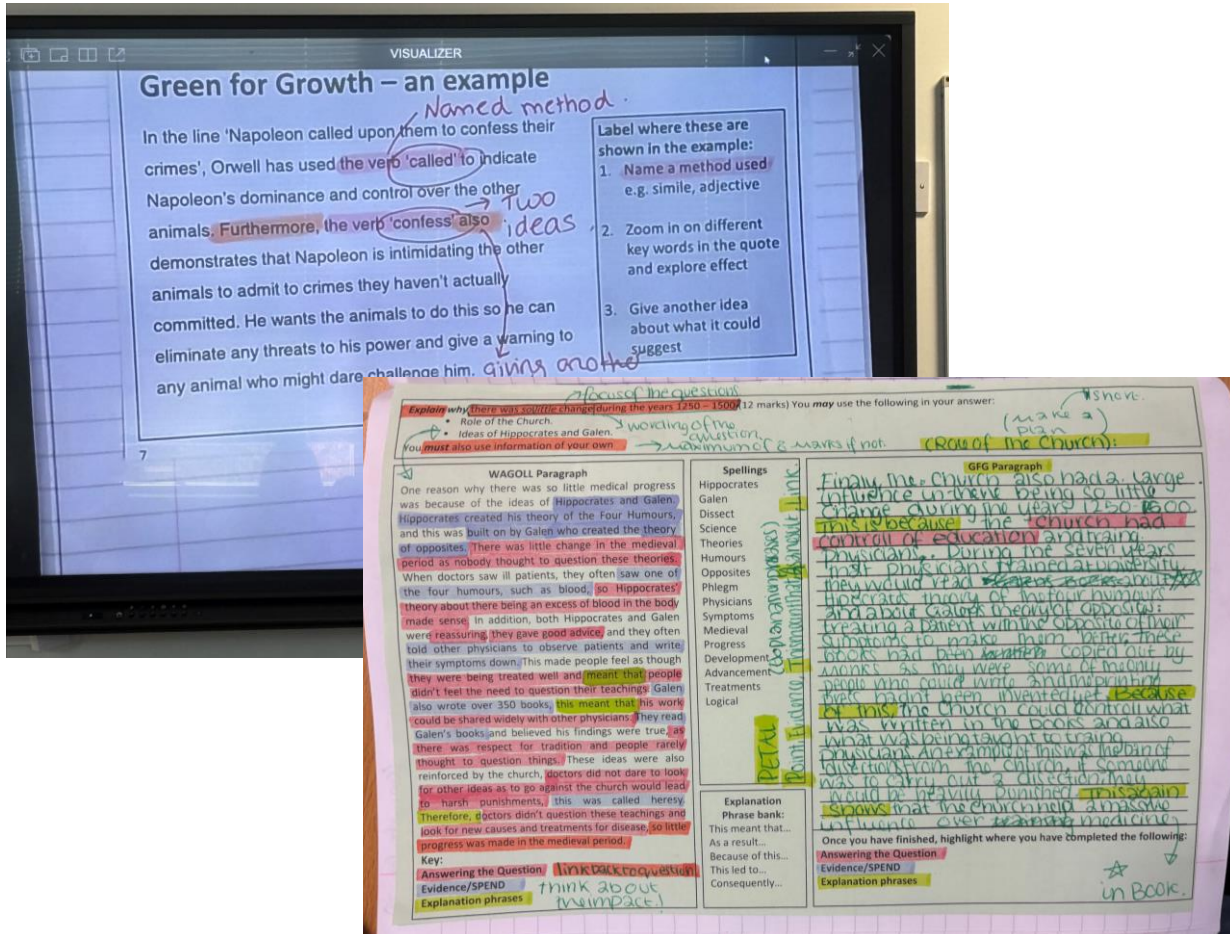 VISUALIZER
Green for Growth – an example
Named method.
In the line 'Napoleon called upon them to confess their
crimes', Orwell has used the verb 'called' to indicate
Napoleon's dominance and control over the other
animals. Furthermore, the verb 'confess' also
→ Two
ideas
demonstrates that Napoleon is intimidating the other
animals to admit to crimes they haven't actually
committed. He wants the animals to do this so he can
eliminate any threats to his power and give a warning to
any animal who might dare challenge him.
giving another
Label where these are
shown in the example:
1. Name a method used
e.g. simile, adjective
2. Zoom in on different
key words in the quote
and explore effect
3. Give another idea
about what it could
suggest
7
focus of the questions
Explain why there was so little change during the years 1250 – 1500 (12 marks) You may use the following in your answer:
• Role of the Church.
• Ideas of Hippocrates and Galen.
You must also use information of your own
wording of the
question
→ maximum of 8 marks if not.
(make a
plan)
(Role of the Church):
WAGOLL Paragraph
One reason why there was so little medical progress
was because of the ideas of Hippocrates and Galen.
Hippocrates created his theory of the Four Humours,
and this was built on by Galen who created the theory
of opposites. There was little change in the medieval
period as nobody thought to question these theories.
When doctors saw ill patients, they often saw one of
the four humours, such as blood, so Hippocrates'
theory about there being an excess of blood in the body
made sense. In addition, both Hippocrates and Galen
were reassuring, they gave good advice, and they often
told other physicians to observe patients and write
their symptoms down. This made people feel as though
they were being treated well and meant that people
didn't feel the need to question their teachings. Galen
also wrote over 350 books, this meant that his work
could be shared widely with other physicians. They read
Galen's books and believed his findings were true, as
there was respect for tradition and people rarely
thought to question things. These ideas were also
reinforced by the church, doctors did not dare to look
for other ideas as to go against the church would lead
to harsh punishments, this was called heresy.
Therefore, doctors didn't question these teachings and
look for new causes and treatments for disease, so little
progress was made in the medieval period.
Key:
Answering the Question
link back to question
Evidence/SPEND
Explanation phrases
think about
the impact!
Spellings
Hippocrates
Galen
Dissect
Science
Theories
Humours
Opposites
Phlegm
Physicians
Symptoms
Medieval
Progress
Development
Advancement
Treatments
Logical
PETAL
Point Evidence
(explanation phrases)
Link.
Explanation
Phrase bank:
This meant that...
As a result...
Because of this...
This led to...
Consequently...
GFG Paragraph
Finally, the Church also had a large
influence in there being so little
change during the years 1250-1500.
This is because the church had
controll of education and traing
physicians. During the seven years
most physicians trained at university
they would read about
hipocratic theory of the four humours
and about Galen's theory of opposites:
treating a patient with the opposite of their
symptoms to make them better. These
books had been copied out by
monks as they were some of the only
people who could write and the printing
press hadn't been invented yet. Because
of this, the Church could controll what
was written in the books and also
what was being taught to traing
physicians. An example of this was the ban of
disections from the church, if someone
was to carry out a disection, they
would be heavily punished. This again
shows that the church held a massive
influence over medicine.
Once you have finished, highlight where you have completed the following:
Answering the Question
Evidence/SPEND
Explanation phrases
in Book.